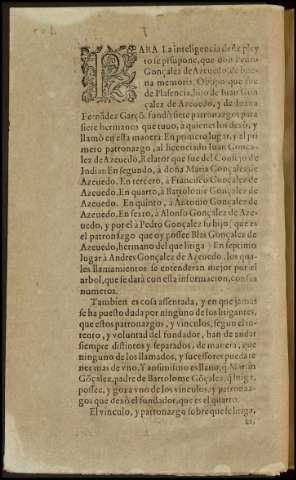 PARA La inteligencia deste pley
to se presupone, que don Pedro
Gonçalez de Azeuedo, de bue
na memoria, Obispo que fue
de Plasencia, hijo de Iuan Gon
çalez de Azeuedo, y de Iuana
Fernãdez Garçõ, fundò siete patronazgos para
siete hermanos que tuuo, à quienes los dexò, y
llamò en esta manera. En primero lugar, y al pri
mero patronazgo, al licenciado Iuan Gonça-
lez de Azeuedo, Relator que fue del Consejo de
Indias. En segundo, à doña Maria Gonçalez de
Azeuedo. En tercero, à Francisco Gonçalez de
Azeuedo. En quarto, à Bartolome Gonçalez de
Azeuedo. En quinto, à Antonio Gonçalez de
Azeuedo. En sexto, à Alonso Gonçalez de Aze-
uedo, y por el à Pedro Gonçalez su hijo; que es
el patronazgo que oy possee Blas Gonçalez de
Azeuedo, hermano del que litiga. Y en septimo
lugar à Andres Gonçalez de Azeuedo. los qua-
les llamamientos se entenderan mejor por el
arbol, que se darà con esta informacion, con sus
numeros.
Tambien es cosa assentada, y en que jamas
se ha puesto duda por ninguno de los litigantes,
que estos patronazgos, y vinculos, segun el in-
tento, y voluntad del fundador, han de andar
siempre distintos y separados, de manera, que
ninguno de los llamados, y sucessores pueda te
ner mas de vno. Y ansimismo es llano, q̃ Martin
Gõçalez, padre de Bartolome Gõçalez, q̃ litiga,
possee, y goza vno de los vinculos, y patrona-
zgos que dexò el fundador, que es el quarto.
El vinculo, y patronazgo sobre que se litiga,
es,